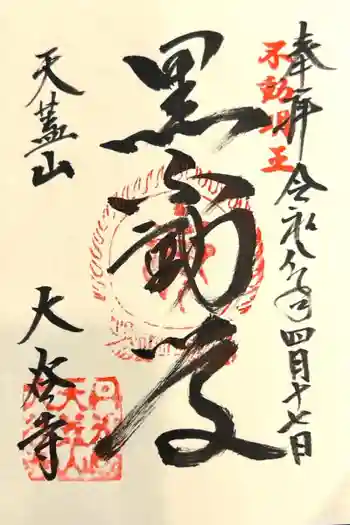 奉拝 令和八年四月十七日
不動明王
黒不動尊
天蓋山